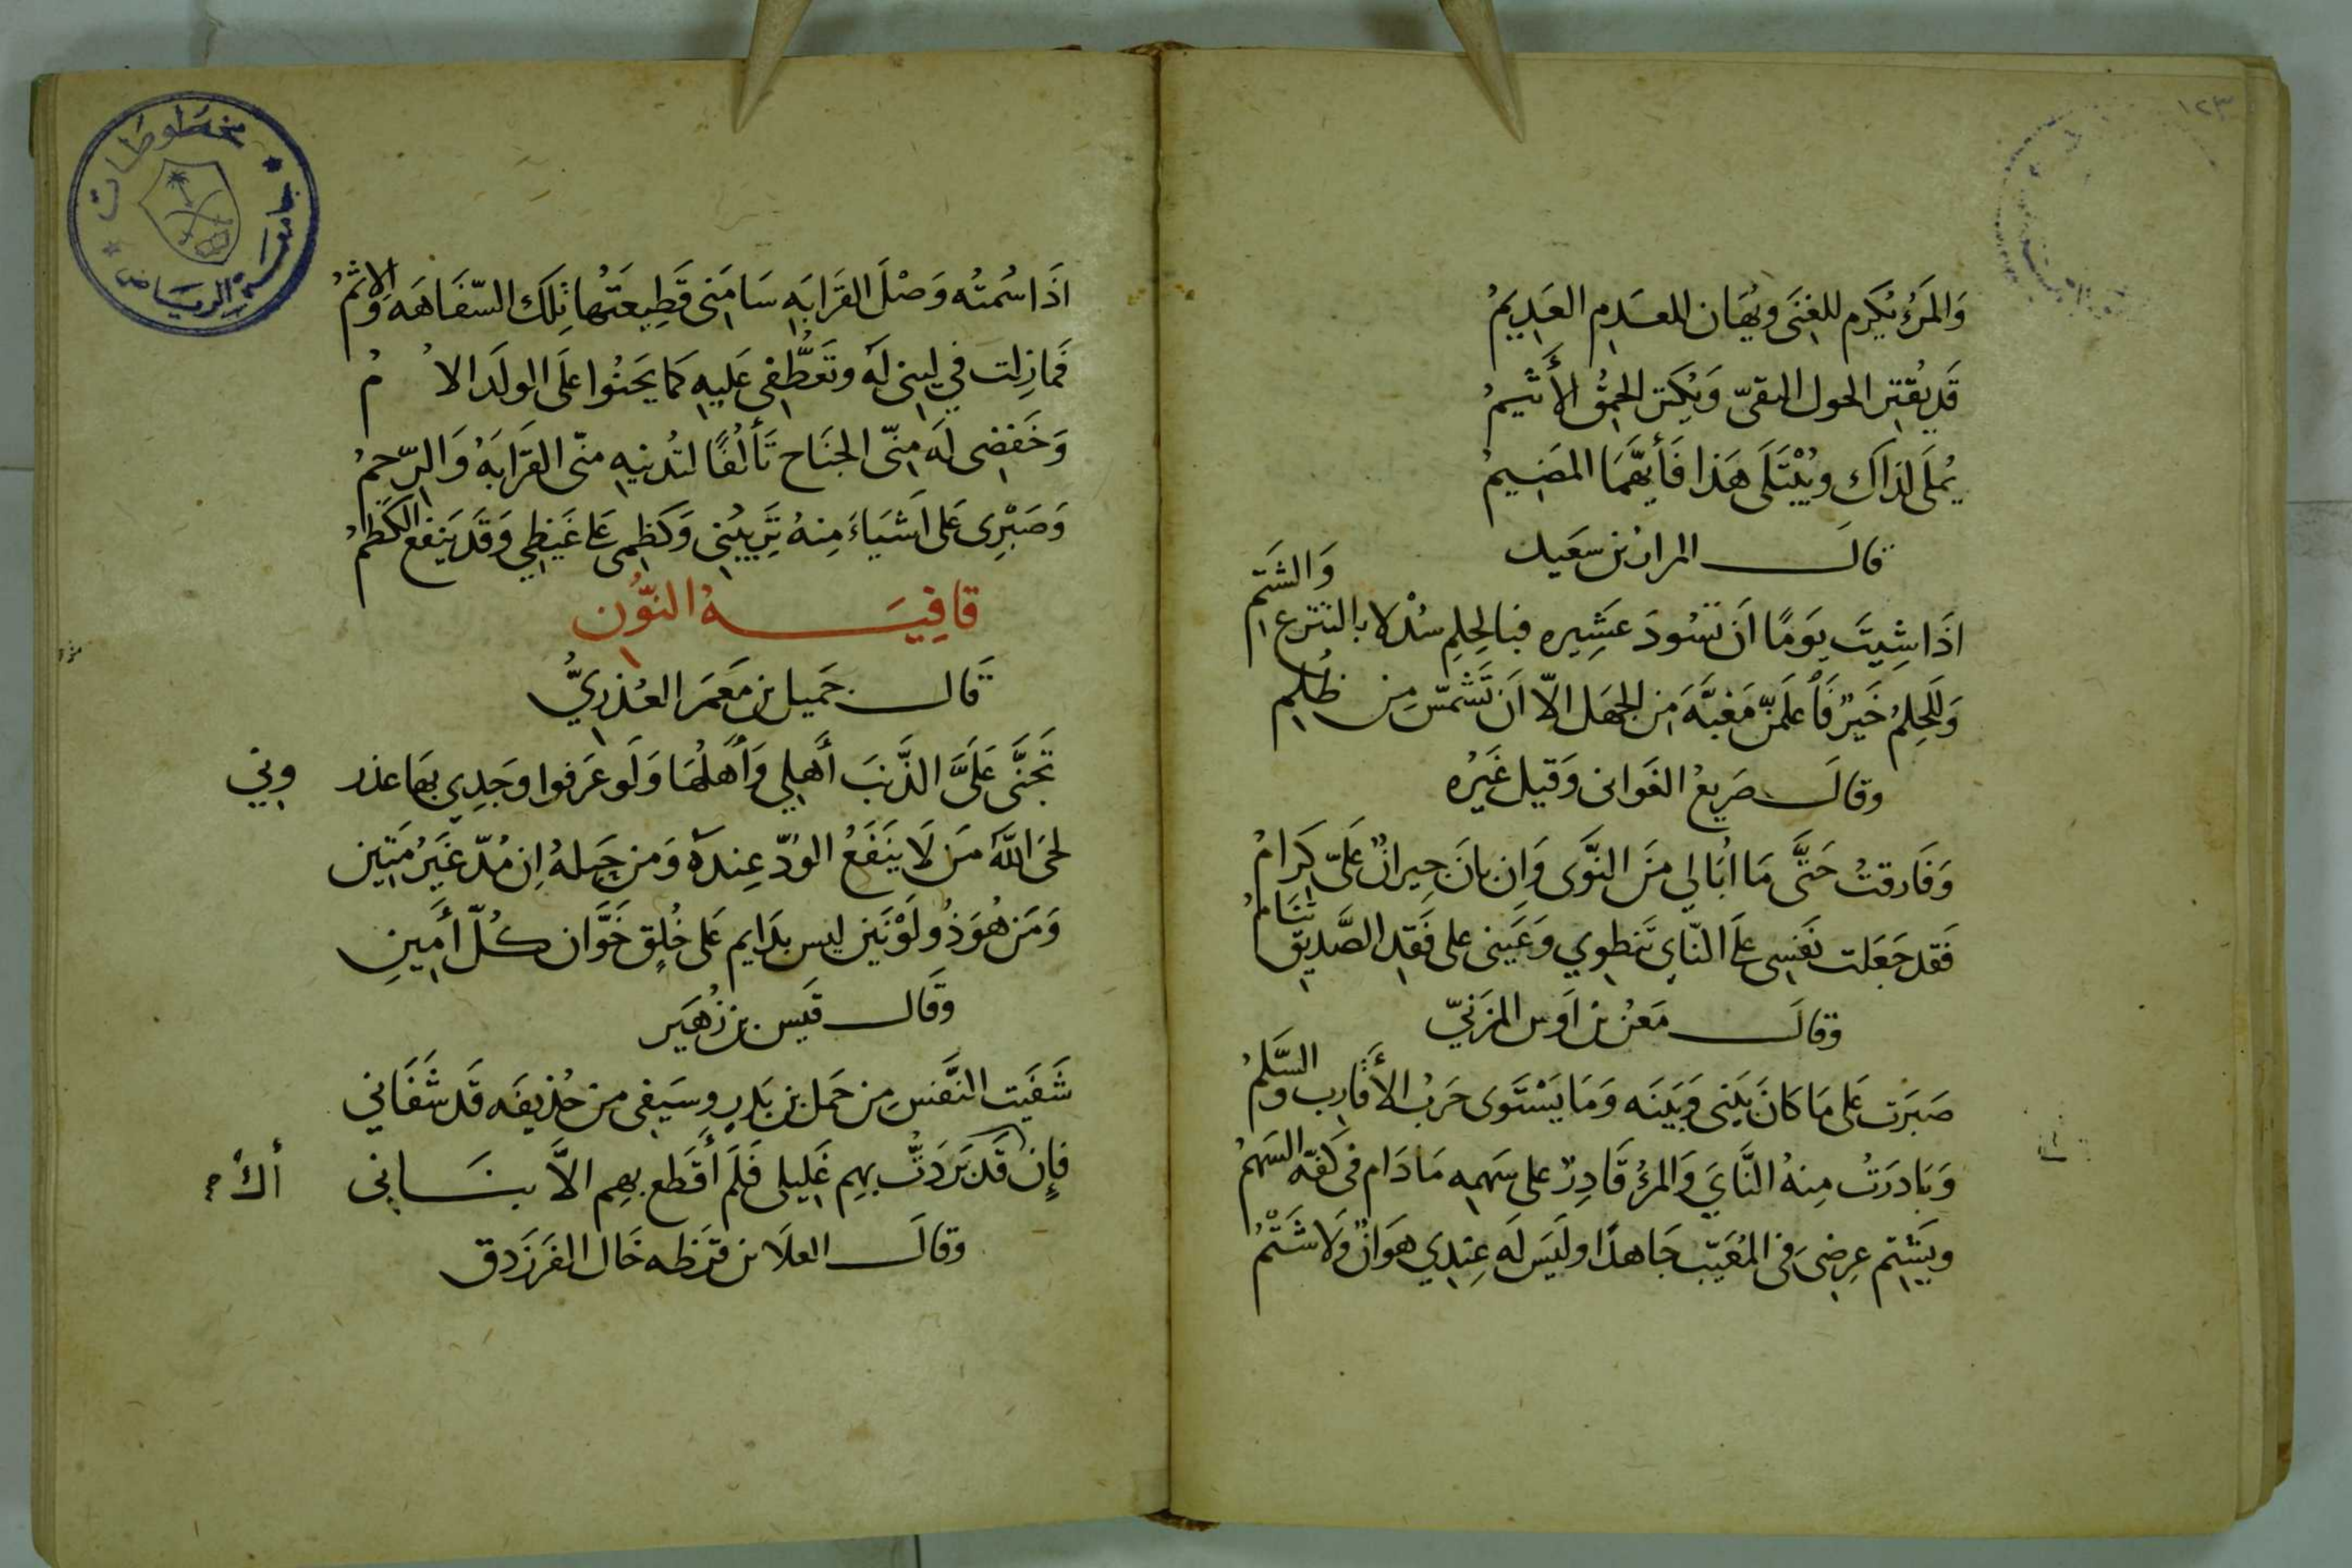 ١٢٣
وَالمَرْءُ يُكرَم للغِنَى ويُهَان للعَدِم العَدِيمُ
قَد يُقتِر الحول التقىّ وَيُكثِر الحَمِقُ الأَثِيمُ
يُملَى لذَاكَ ويُبْتَلَى هَذا فَأَيُّهمَا المَضِيمُ
قال المرار بن سعيد
اذَا شِيتَ يَومًا اَن تَسُودَ عَشِيره فبالحِلم سُدْ لا بالتترع وَالشَتم
وَللحِلمُ خَيرٌ فَاعلَمنّ مَغبَّةً مِن الجَهل الاّ اَن تَشَمّسَ مِن ظُلم
وقال صَريعُ الغَوانى وَقيل غَيرُه
وَفَارقتُ حَتَّى مَا اُبَالي مِنَ النَّوَى وَاِن بَانَ جِيرانٌ عَلىّ كِرَامُ
فَقد جَعَلت نَفسِى عَلَى النّايِ تَنطوِي وَعَينى على فَقدِ الصَّديق تنَامُ
وقالَ مَعنُ بن اَوس المزَنيّ
صَبَرت عَلى مَا كَانَ بَيني وَبَينَه وَمَا يَسْتَوى حَربُ الأَقَارِب والسَّلمُ
وَبَادَرَتُ مِنهُ النَّايَ وَالمرءُ قَادِرٌ على سَهمِه مَا دَام فى كفّه السَهمُ
ويَشتِم عِرضِىَ فى المُغَيّب جَاهدًا ولَيسَ لَه عِندِي هَوانٌ وَلا شَتْمُ
اذَا سُمتُه وَصْلَ القَرابَه سَامَنى قَطِيعَتَها تِلكَ السّفَاهَه وَالاِثمُ
فَمَا زِلت في لِينٍ لَه وتَعَطُّفِى عَليهِ كَمَا يَحنُوا عَلَى الولَد الاُمُ
وَخَفضِى لَه مِنّى الجنَاح تَأَلُفًا لتُدنيهِ مِنّى القَرَابَهُ وَالرّحِمُ
وَصَبْرِى عَلى اَشيَاءَ مِنهُ تَرِيبُني وَكَظمِى عَلى غَيظِي وَقَد يَنفع الكَظمُ
قافِيَهُ النُّون
قَال جَميل بن مَعمَر العُذريُّ
تَجَنَّى عَلَىَّ الذَّنبَ أَهلِي وَأَهلُهَا وَلَو عَرَفوا وَجدِي بهَا عذروني
لحَى اللهُ مَن لَا يَنفَعُ الوُدّ عِندَهُ وَمَن حَبلهُ اِن مُدّ غَيرُ مَتِين
وَمَن هُوَ ذُو لَوْنَين ليس بدَايم عَلى خُلقٍ خَوَّان كُلّ أَمِينِ
وقَال قَيس بن زُهَير
شَفَيت النَّفسَ مِن حَمَل بن بَدرٍ وسَيفِى مِن حُذيفَه قَد شَفَاني
فإن أَكُ قَد بَرَدتُّ بهِم غَليلى فَلَم أَقطَع بهِم الاَّ بنَانِى
وقالَ العلَا بن قرَظه خَال الفَرَزدق
جامعة الرياض
مخطوطات